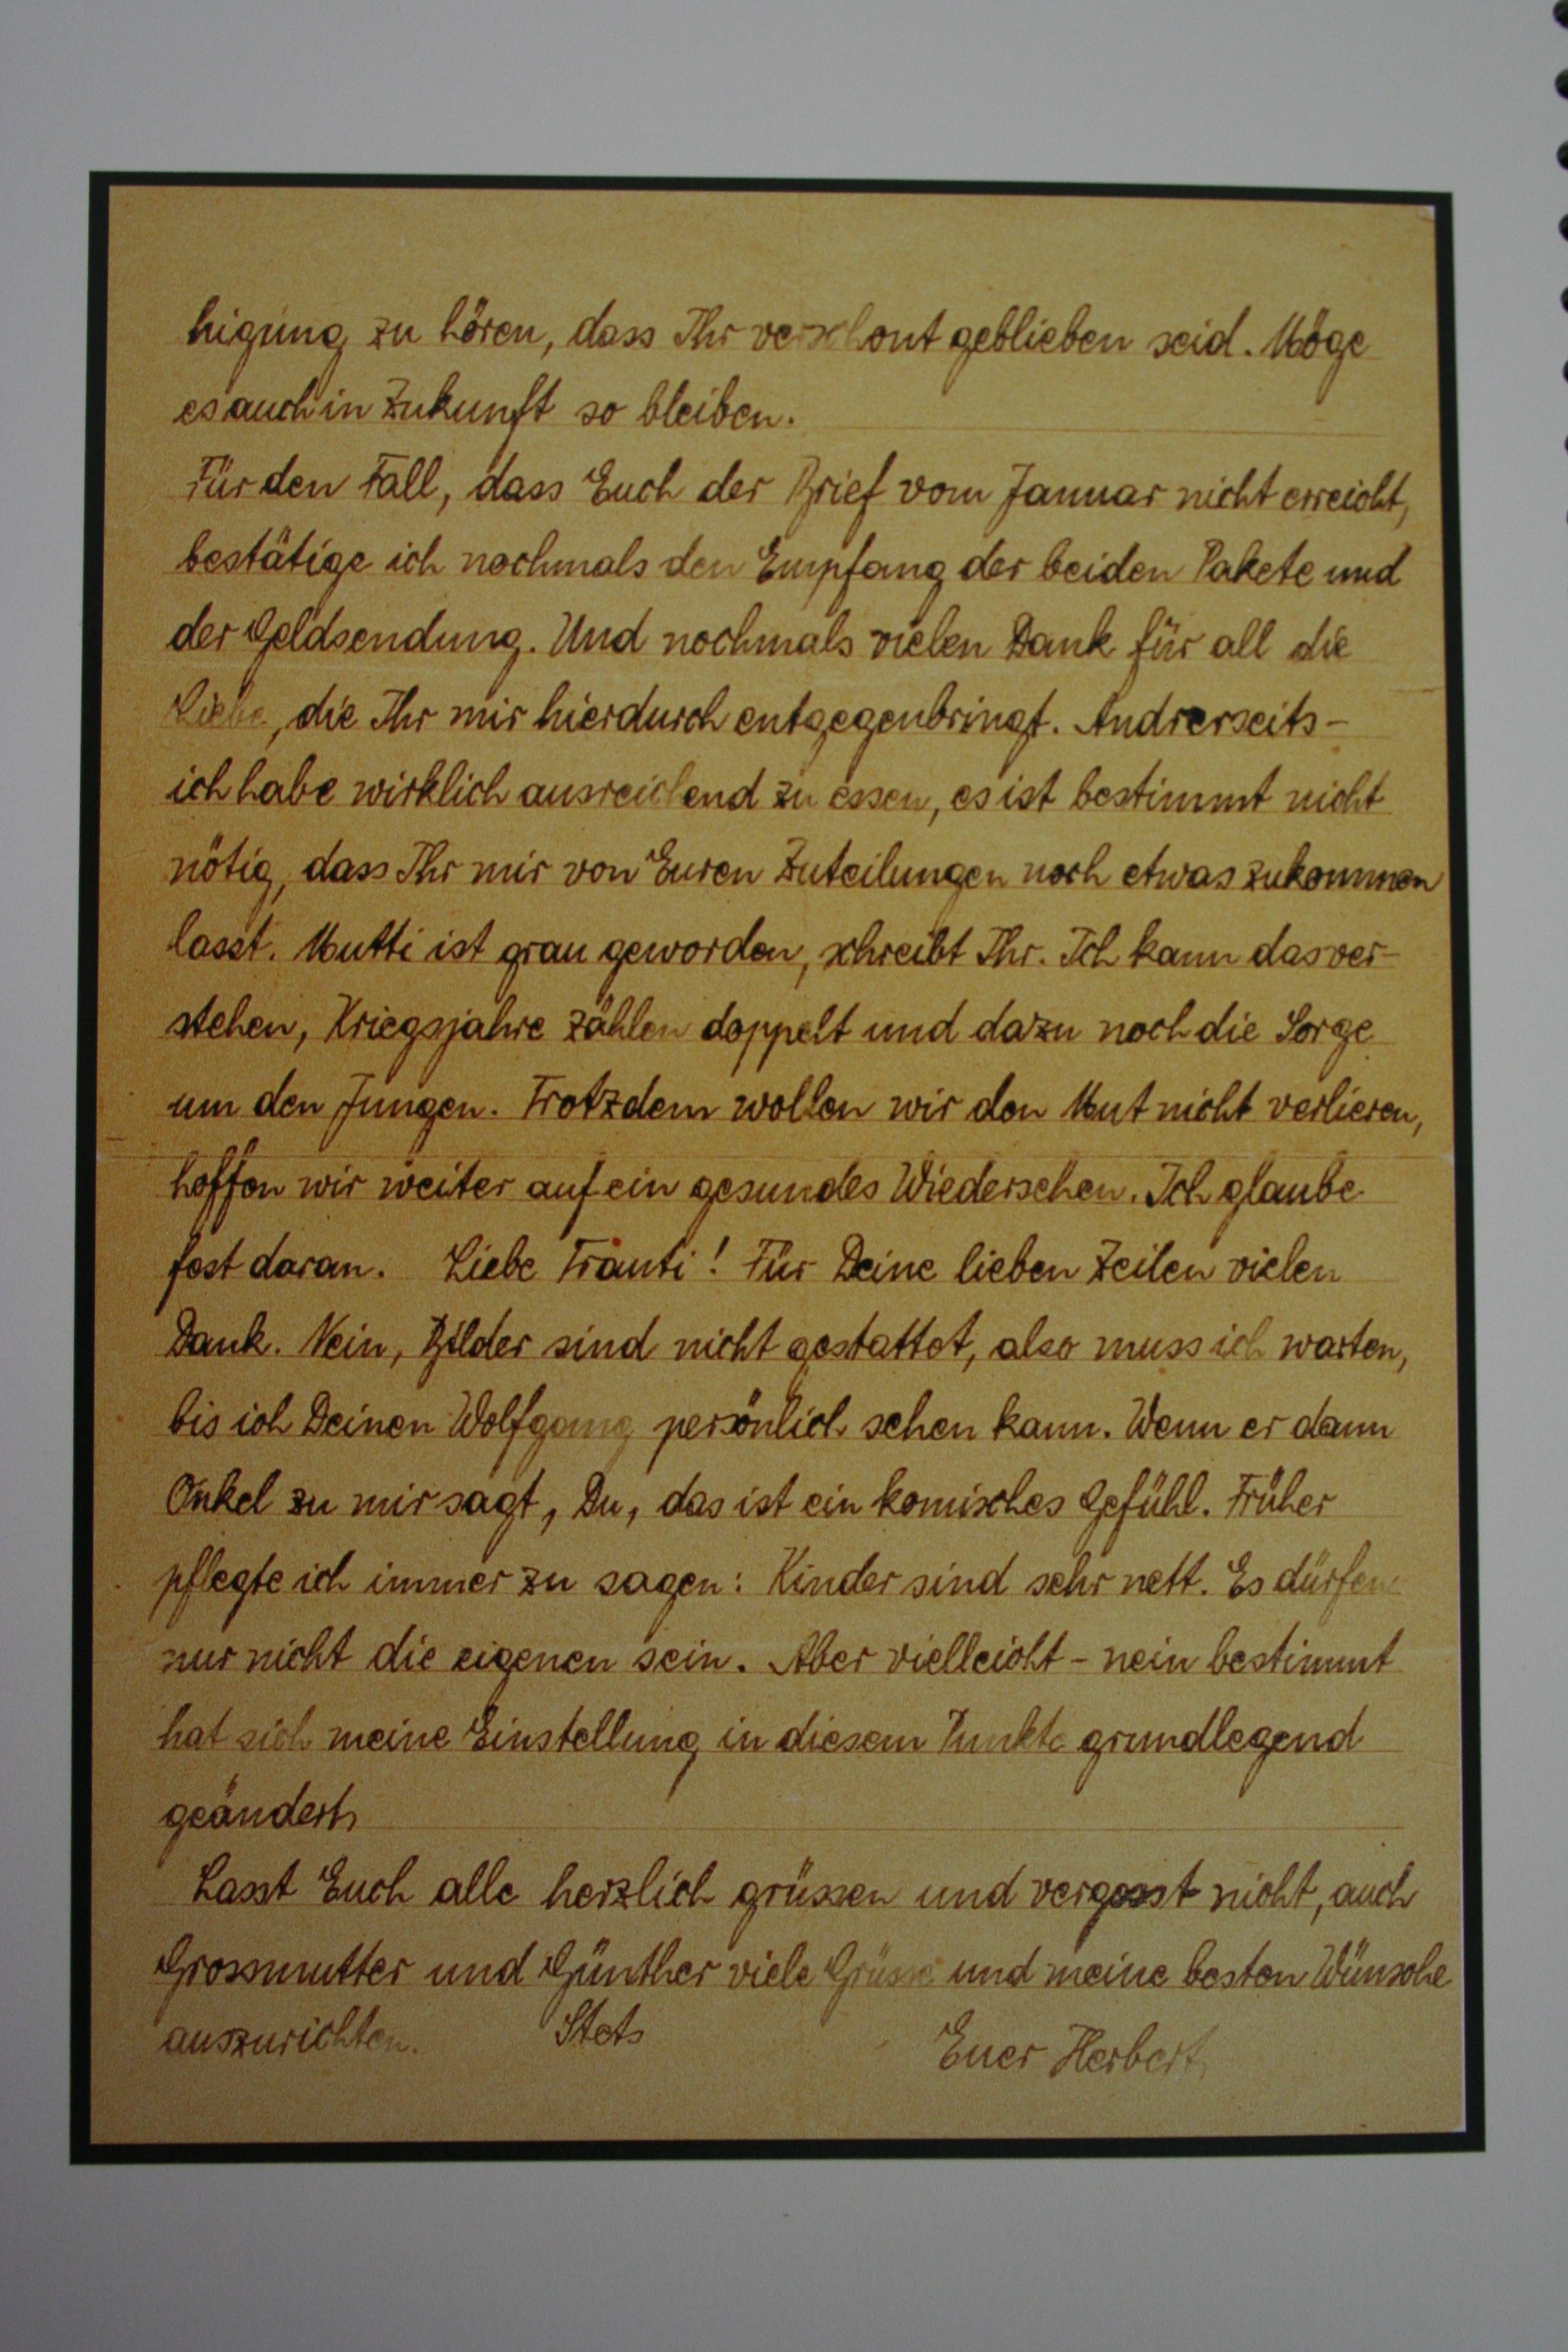 higung zu hören, dass Ihr verschont geblieben seid. Möge
es auch in Zukunft so bleiben.
Für den Fall, dass Euch der Brief vom Januar nicht erreicht,
bestätige ich nochmals den Empfang der beiden Pakete und
der Geldsendung. Und nochmals vielen Dank für all die
Liebe, die Ihr mir hierdurch entgegenbringt. Andrerseits -
ich habe wirklich ausreichend zu essen, es ist bestimmt nicht
nötig, dass Ihr mir von Euren Zuteilungen noch etwas zukommen
lasst. Mutti ist grau geworden, schreibt Ihr. Ich kann das ver-
stehen, Kriegsjahre zählen doppelt und dazu noch die Sorge
um den Jungen. Trotzdem wollen wir den Mut nicht verlieren,
hoffen wir weiter auf ein gesundes Wiedersehen. Ich glaube
fest daran. Liebe Trauti! Für Deine lieben Zeilen vielen
Dank. Nein, Bilder sind nicht gestattet, also muss ich warten,
bis ich Deinen Wolfgang persönlich sehen kann. Wenn er dann
Onkel zu mir sagt, Du, das ist ein komisches Gefühl. Früher
pflegte ich immer zu sagen: Kinder sind sehr nett. Es dürfen
nur nicht die eigenen sein. Aber vielleicht - nein bestimmt
hat sich meine Einstellung in diesem Punkte grundlegend
geändert.
Lasst Euch alle herzlich grüssen und vergesst nicht, auch
Grossmutter und Günther viele Grüsse und meine besten Wünsche
auszurichten. Stets Euer Herbert